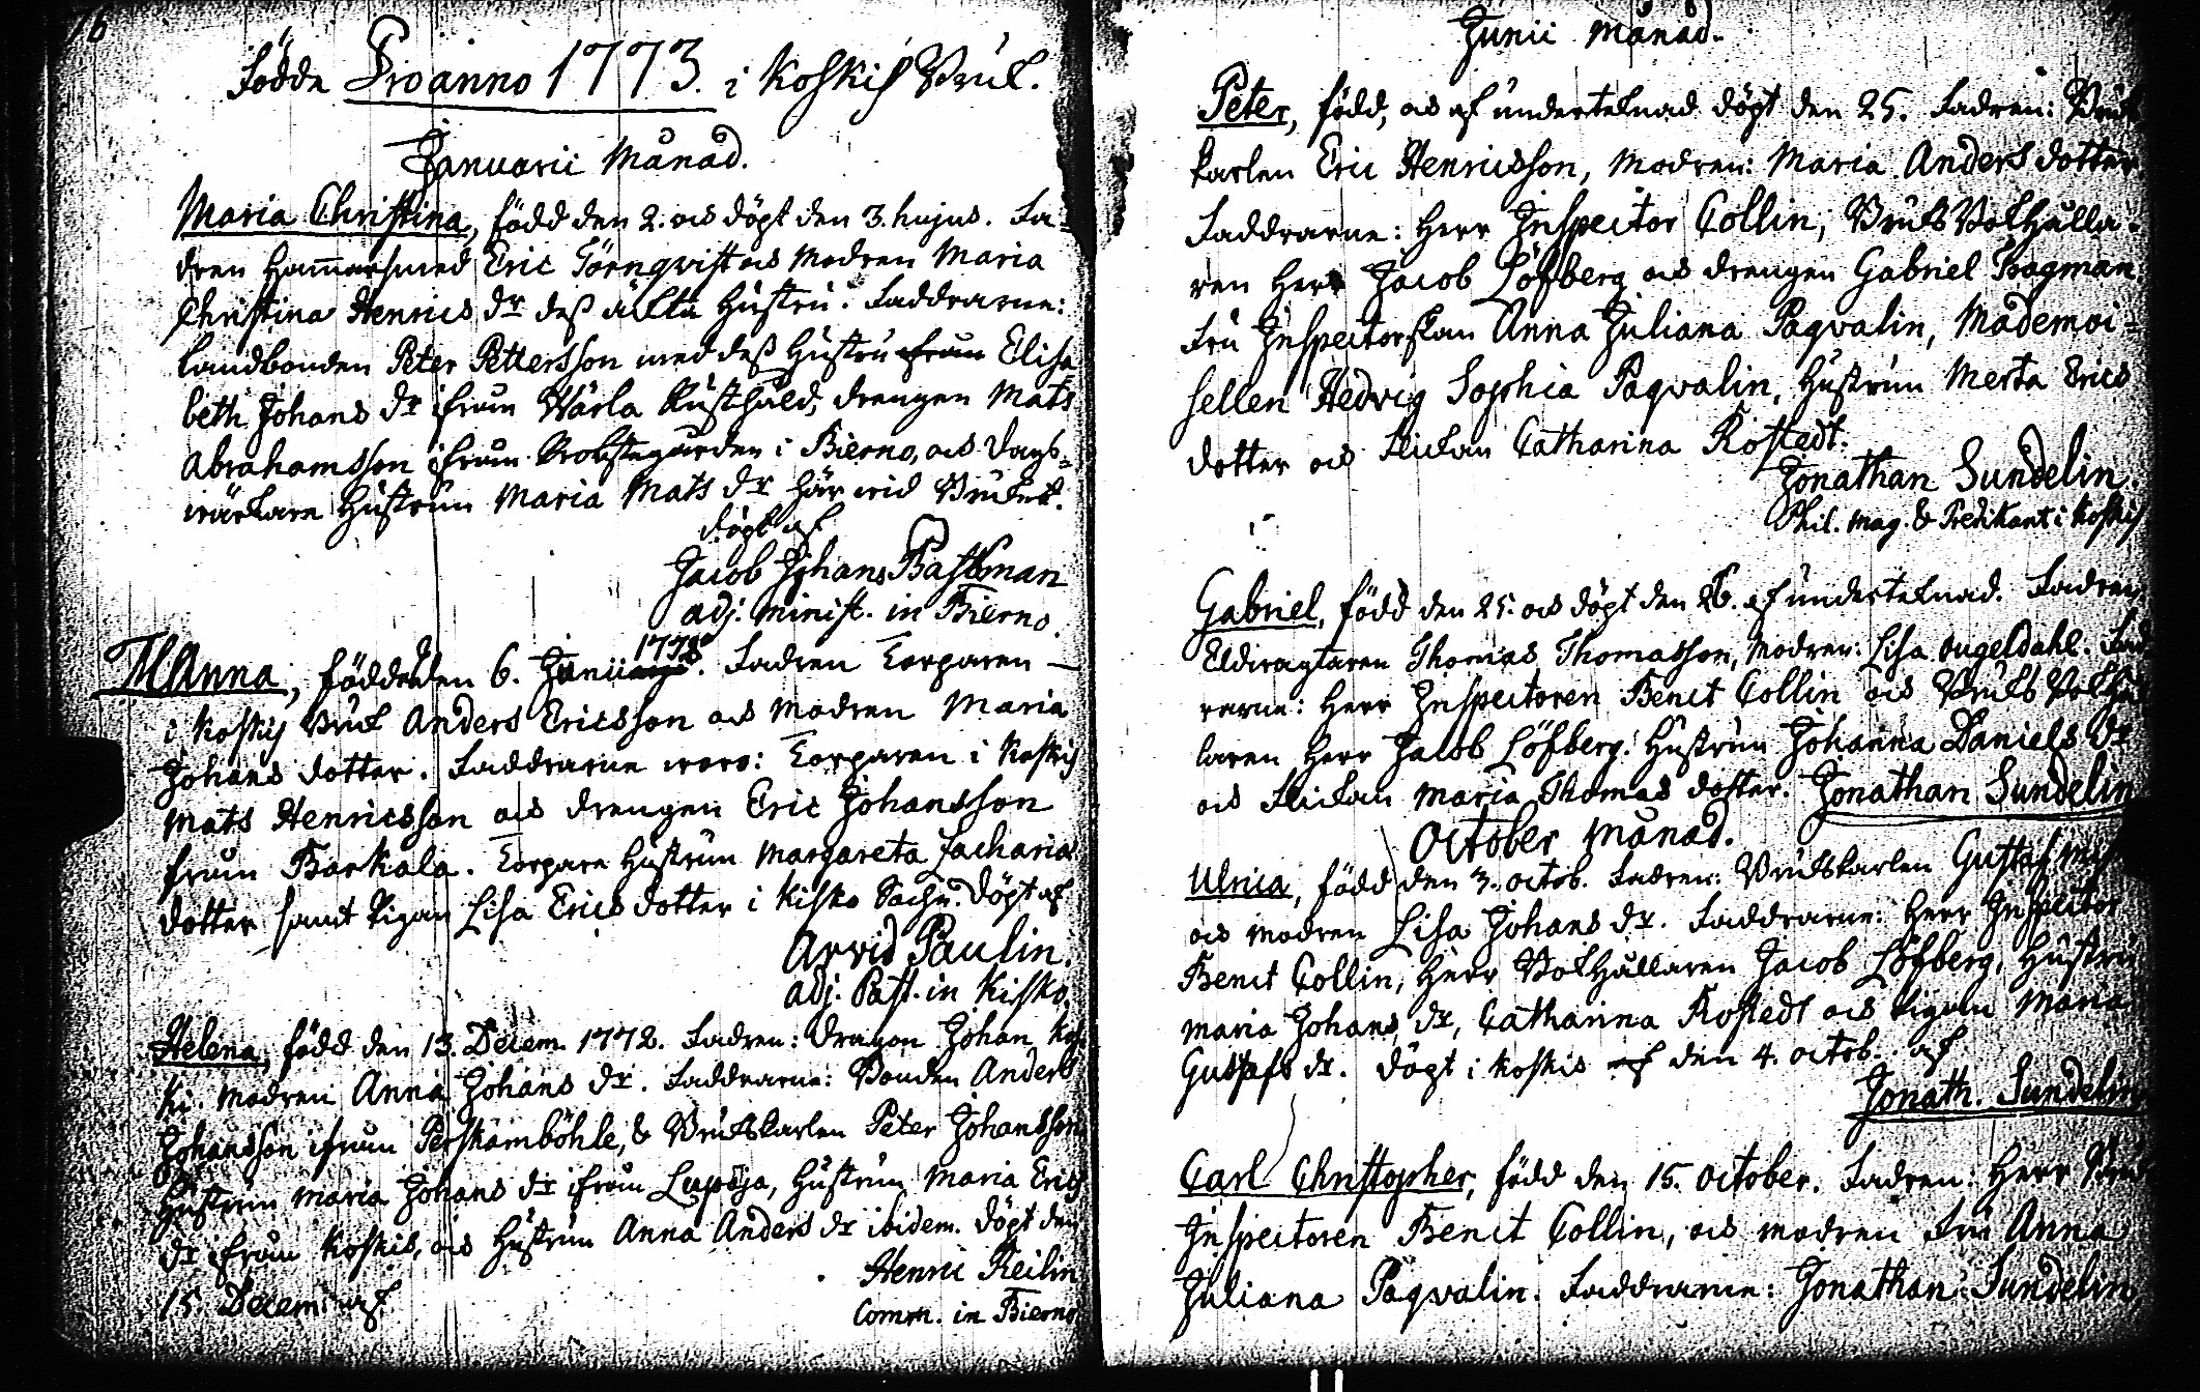 16
Födde Pro anno 1773. i Koskis Bruk.
Januarii Månad.
Maria Christina, född den 2. och döpt den 3. hujus. Fa=
dren Hamarsmed Eric Törnqvist och Modren Maria
Christina Henrics dr. dess äckta Hustru. Faddrarne:
Landbonden Peter Pettersson med dess Hustru ifrån Elisa
beth Johans dr ifrån Wärla Rusthåld, drengen Mats
Abrahamsson ifrån Probstegården i Bierno, och Dags=
wärkare Hustrun Maria Mats dr här wid Bruket.
döpt af
Jacob Johans Bastman
adj. Minist. in Bierno.
Anna, född den 6. Junii 1773. Fadren Torparen —
i Koskis Bruk Anders Ericsson och Modren Maria
Johans dotter. Faddrarne woro: Torparen i Koskis
Mats Henricsson och drengen Eric Johansson
från Barkala. Torpare Hustrun Margareta Zacharia
dotter samt Pigan Lisa Erics dotter i Kisko Sochn. döpt af
Arvid Paulin.
adj. Past. in Kisko.
Helena, född den 13. Decem. 1772. Fadren: Dragon Johan Kos=
ki. Modren Anna Johans dr. Faddrarne: Bonden Anders
Johansson ifrån Perskamböhle, & Brukskarlen Peter Johansson
Hustrun Maria Johans dr ifrån Lapsja, Hustrun Maria Erics
dr ifrån Koskis, och Hustrun Anna Anders dr ibidem. döpt den
15. Decem. af
Henric Reilin
Comm. in Bierno
Junii Månad.
Peter, född, och af underteknad döpt den 25. Fadren: Bruks
karlen Eric Henricsson, Modren: Maria Anders dotter
Faddrarne: Herr Inspector Collin, Bruks Bokhålla=
ren Herr Jacob Löfberg och drengen Gabriel Bogman.
Fru Inspectorskan Anna Juliana Pagvalin, Mademoi=
sellen Hedvig Sophia Pagvalin, Hustrun Merta Erics
dotter och Flickan Catharina Rostedt.
Jonathan Sundelin.
Phil. Mag. & Predikant i Koskis
Gabriel, född den 25. och döpt den 26. af underteknad. Fadren
Eldwagtaren Thomas Thomasson, Modren: Lisa Ougeldahl. Fadd
rarne: Herr Inspectoren Benct Collin och Bruks Bokhål
laren Herr Jacob Löfberg. Hustrun Johanna Daniels dr
och Flickan Maria Thomas dotter. Jonathan Sundelin
October Månad.
Ulrica, född den 3. octob. Fadren: Brukskarlen Gustaf
och Modren Lisa Johans dr. Faddrarne: Herr Inspector
Benct Collin, Herr Bokhållaren Jacob Löfberg, Hustru
Maria Johans dr, Catharina Rostedt och Pigan Maria
Gustafs dr. döpt i Koskis af den 4. octob. af
Jonath. Sundelin
Carl Christopher, född den 15. October. Fadren: Herr Bruks
Inspectoren Benct Collin, och Modren Fru Anna
Juliana Pagvalin. Faddrarne: Jonathan Sundelin,